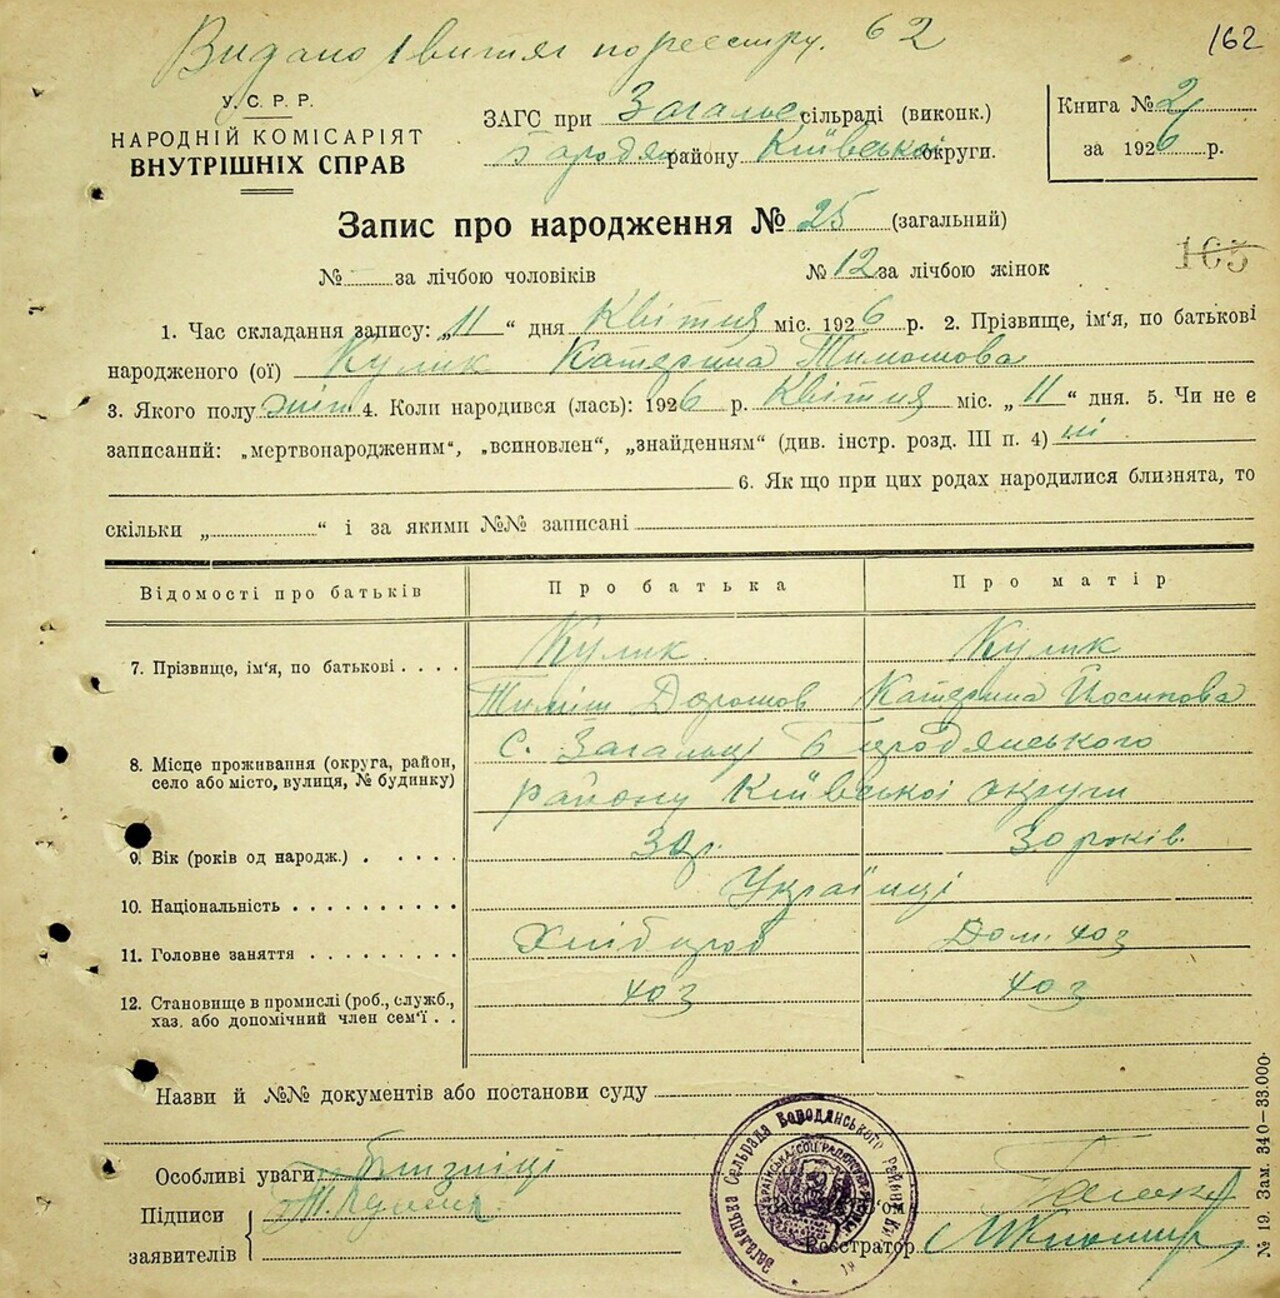 Видано 1 витяг по реестру. 62
162
У. С. Р. Р.
НАРОДНІЙ КОМІСАРІЯТ
ВНУТРІШНІХ СПРАВ
ЗАГС при Загальс сільраді (викопк.)
Бородян району Київської округи.
Книга № 2
за 1926 р.
Запис про народження № 25 (загальний)
№ за лічбою чоловіків № 12 за лічбою жінок
165
1. Час складання запису: „11“ дня Квітня міс. 1926 р. 2. Прізвище, ім‘я, по батькові
народженого (ої) Кулик Катерина Тимошова
3. Якого полу жін 4. Коли народився (лась): 1926 р. Квітня міс. „11“ дня. 5. Чи не є
записаний: „мертвонародженим“, „всиновлен“, „знайденням“ (див. інстр. розд. III п. 4) ні
6. Як що при цих родах народилися близнята, то
скільки „ “ і за якими №№ записані
Відомості про батьків Про батька Про матір
7. Прізвище, ім‘я, по батькові . . . . Кулик Кулик
Тиміш Дорошов Катерина Йосипова
8. Місце проживання (округа, район, село або місто, вулиця, № будинку) с. Загальці Бородянського
району Київської округи
9. Вік (років од народж.) . . . . . 30 р. 30 років.
10. Національність . . . . . . . . . . Українці
11. Головне заняття . . . . . . . . . Хлібороб Дом. хоз
12. Становище в промислі (роб., служб., хоз хоз
хаз. або допомічний член сем‘ї . .
Назви й №№ документів або постанови суду
Особливі уваги близніці
Підписи
заявителів
Реєстратор
Загалецька Сельрада Бородянського Району
№ 19. Зам. 340—33.000.